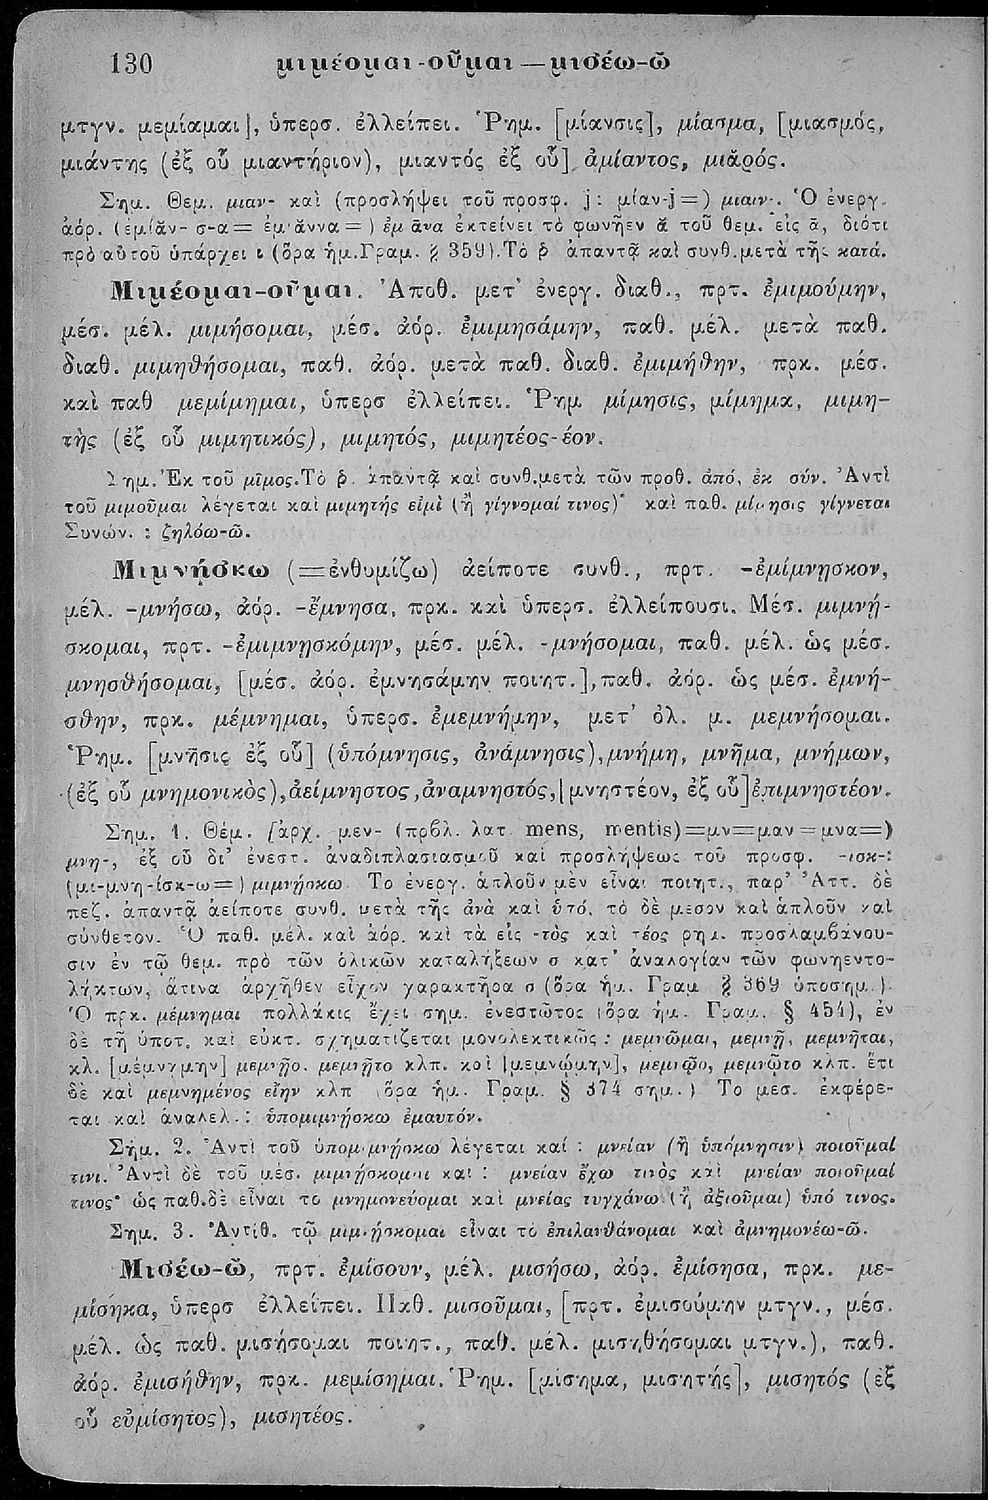 130 μιμέομαι-οῦμαι — μισέω-ῶ
μτγν. μεμίαμαι], ὑπερσ. ἐλλείπει. Ῥημ. [μίανσις], μίασμα, [μιασμός,
μιάντης (ἐξ οὗ μιαντήριον), μιαντός ἐξ οὗ] ἀμίαντος, μιᾰρός.
Σημ. Θεμ. μιαν- καὶ (προσλήψει τοῦ προσφ. j: μίαν-j=) μιαιν-. Ὁ ἐνεργ.
ἀόρ. (ἐμίᾰν-σ-α= ἐμίαννα=) ἐμίανα ἐκτείνει τὸ φωνῆεν ᾰ τοῦ θεμ. εἰς ᾱ, διότι
πρὸ αὐτοῦ ὑπάρχει ι (ὅρα ἡμ. Γραμ. § 359). Τὸ ῥ ἀπαντᾷ καὶ συνθ. μετὰ τῆς κατά.
Μιμέομαι-οῦμαι. Ἀποθ. μετ' ἐνεργ. διαθ., πρτ. ἐμιμούμην,
μέσ. μέλ. μιμήσομαι, μέσ. ἀόρ. ἐμιμησάμην, παθ. μέλ. μετὰ παθ.
διαθ. μιμηθήσομαι, παθ. ἀόρ. μετὰ παθ. διαθ. ἐμιμήθην, πρκ. μέσ.
καὶ παθ μεμίμημαι, ὑπερσ ἐλλείπει. Ῥημ μίμησις, μίμημα, μιμη-
τὴς (ἐξ οὗ μιμητικός), μιμητός, μιμητέος-έον.
Σημ. Ἐκ τοῦ μῖμος. Τὸ ῥ. ἀπαντᾷ καὶ συνθ. μετὰ τῶν προθ. ἀπό, ἐκ σύν. Ἀντὶ
τοῦ μιμοῦμαι λέγεται καὶ μιμητής εἰμὶ (ἢ γίγνομαί τινος)· καὶ παθ. μίμησις γίγνεται
Συνών. : ζηλόω-ῶ.
Μιμνήσκω (=ἐνθυμίζω) ἀείποτε συνθ., πρτ. -ἐμίμνησκον,
μέλ. -μνήσω, ἀόρ. -ἔμνησα, πρκ. καὶ ὑπερσ. ἐλλείπουσι. Μέσ. μιμνή-
σκομαι, πρτ. -ἐμιμνησκόμην, μέσ. μέλ. -μνήσομαι, παθ. μέλ. ὡς μέσ.
μνησθήσομαι, [μέσ. ἀόρ. ἐμνησάμην ποιητ.], παθ. ἀόρ. ὡς μέσ. ἐμνή-
σθην, πρκ. μέμνημαι, ὑπερσ. ἐμεμνήμην, μετ' ὀλ. μ. μεμνήσομαι.
Ῥημ. [μνῆσις ἐξ οὗ] (ὑπόμνησις, ἀνάμνησις), μνήμη, μνῆμα, μνήμων,
(ἐξ οὗ μνημονικὸς), ἀείμνηστος, ἀναμνηστός, [μνηστέον, ἐξ οὗ] ἐπιμνηστέον.
Σημ. 1. Θέμ. [ἀρχ. μεν- (πρβλ. λατ. mens, mentis)=μν=μαν=μνα=)
μνη-, ἐξ οὗ δι' ἐνεστ. ἀναδιπλασιασμοῦ καὶ προσλήψεως τοῦ προσφ. -ισκ-:
(μι-μνη-ίσκ-ω=) μιμνῄσκω. Τὸ ἐνεργ. ἁπλοῦν μὲν εἶναι ποιητ., παρ' Ἀττ. δὲ
πεζ. ἀπαντᾷ ἀείποτε συνθ. μετὰ τῆς ἀνὰ καὶ ὑπό, τὸ δὲ μέσον καὶ ἁπλοῦν καὶ
σύνθετον. Ὁ παθ. μέλ. καὶ ἀόρ. καὶ τὰ εἰς -τὸς καὶ -τέος ρημ. προσλαμβάνου-
σιν ἐν τῷ θεμ. πρὸ τῶν ὁλικῶν καταλήξεων σ κατ' ἀναλογίαν τῶν φωνηεντο-
λήκτων, ἅτινα ἀρχῆθεν εἶχον χαρακτῆρα σ (ὅρα ἡμ. Γραμ § 369 ὑποσημ.).
Ὁ πρκ. μέμνημαι πολλάκις ἔχει σημ. ἐνεστῶτος (ὅρα ἡμ. Γραμ. § 454), ἐν
δὲ τῇ ὑποτ. καὶ εὐκτ. σχηματίζεται μονολεκτικῶς: μεμνῶμαι, μεμνῇ, μεμνῆται,
κλ. [μεμνῄμην] μεμνῇο, μεμνῇτο κλπ. καὶ [μεμνῴμην], μεμνῷο, μεμνῷτο κλπ. ἔτι
δὲ καὶ μεμνημένος εἴην κλπ (ὅρα ἡμ. Γραμ. § 374 σημ.) Τὸ μέσ. ἐκφέρε-
ται καὶ ἀναλελ.: ὑπομιμνῄσκω ἐμαυτόν.
Σημ. 2. Ἀντὶ τοῦ ὑπομιμνῄσκω λέγεται καί : μνείαν (ἢ ὑπόμνησιν) ποιοῦμαί
τινι. Ἀντὶ δὲ τοῦ μέσ. μιμνῄσκομαι καὶ : μνείαν ἔχω τινὸς καὶ μνείαν ποιοῦμαί
τινος· ὡς παθ. δὲ εἶναι τὸ μνημονεύομαι καὶ μνείας τυγχάνω (ἢ ἀξιοῦμαι) ὑπό τινος.
Σημ. 3. Ἀντίθ. τῷ μιμνῄσκομαι εἶναι τὸ ἐπιλανθάνομαι καὶ ἀμνημονέω-ῶ.
Μισέω-ῶ, πρτ. ἐμίσουν, μέλ. μισήσω, ἀόρ. ἐμίσησα, πρκ. με-
μίσηκα, ὑπερσ ἐλλείπει. Παθ. μισοῦμαι, [πρτ. ἐμισούμην μτγν., μέσ.
μέλ. ὡς παθ. μισήσομαι ποιητ., παθ. μέλ. μισηθήσομαι μτγν.), παθ.
ἀόρ. ἐμισήθην, πρκ. μεμίσημαι. Ῥημ. [μίσημα, μισητής], μισητός (ἐξ
οὗ εὐμίσητος), μισητέος.